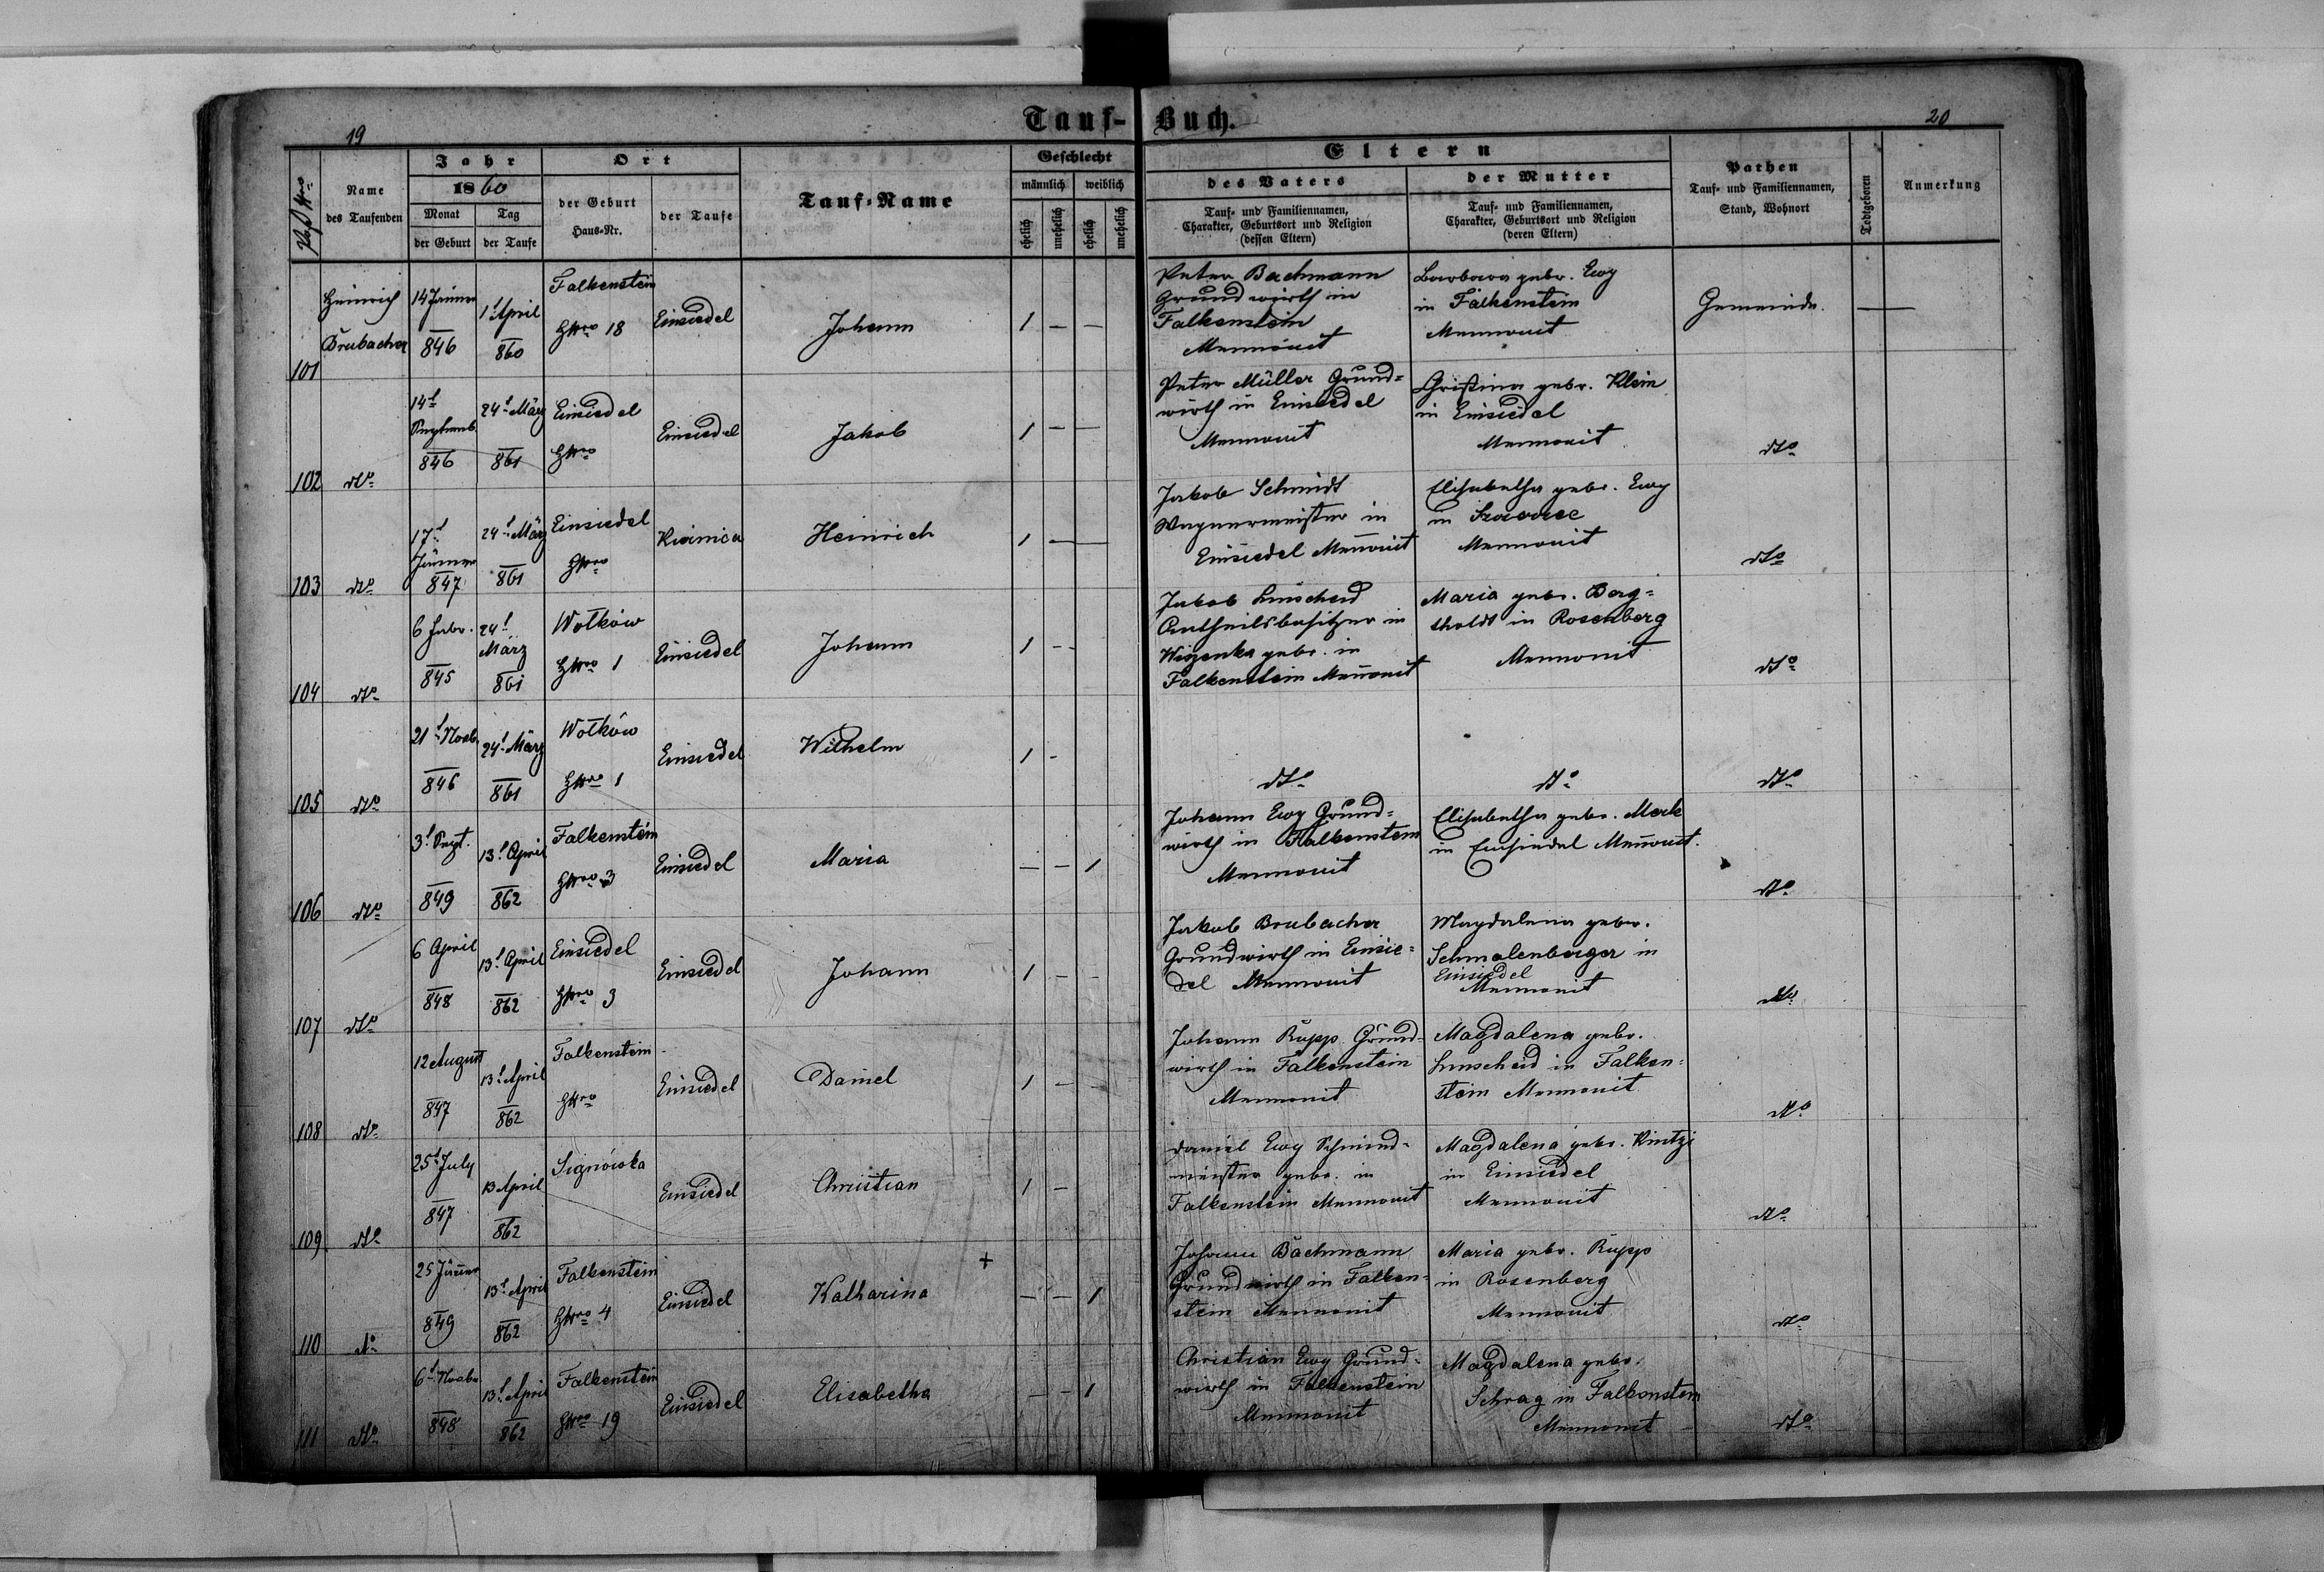 Tauf-Buch.
19
20
Post Nro
Name des Taufenden
Jahr
1860
Monat
Tag
der Geburt
der Taufe
Ort
der Geburt
Haus-Nr.
der Taufe
Tauf-Name
Geschlecht
männlich
weiblich
ehelich
unehelich
ehelich
unehelich
Eltern
des Vaters
Tauf- und Familiennamen,
Charakter, Geburtsort und Religion
(dessen Eltern)
der Mutter
Tauf- und Familiennamen,
Charakter, Geburtsort und Religion
(deren Eltern)
Pathen
Tauf- und Familiennamen,
Stand, Wohnort
Todtgeboren
Anmerkung
101
Heinrich
Brubacher
14 Jänner
846
1t April
860
Falkenstein
HNro 18
Einsiedel
Johann
1 – –
Peter Bachmann
Grundwirth in
Falkenstein
Mennonit
Barbara gebr. Ewy
in Falkenstein
Mennonit
Gemeinde.
102
dto
14t
Septemb
846
24t März
861
Einsiedel
HNro
Einsiedel
Jakob
1 – –
Peter Müller Grund=
wirth in Einsiedel
Mennonit
Christina gebr. Klein
in Einsiedel
Mennonit
dto
103
dto
17t
Jänner
847
24t März
861
Einsiedel
HNro
Kiernica
Heinrich
1 – –
Jakob Schmidt
Wagnermeister in
Einsiedel Menonit
Elisabetha gebr. Ewy
in
Mennonit
dto
104
dto
6 Febr.
845
24t
März
861
Wolków
HNro 1
Einsiedel
Johann
1 - -
Jakob Linscheid
Antheilsbesitzer in
Wiszenka gebr. in
Falkenstein Menonit
Maria gebr. Berg=
tholdt in Rosenberg
Mennonit
dto
105
dto
21t Novb.
846
24t März
861
Wolków
HNro 1
Einsiedel
Wilhelm
1 -
dto
dto
dto
106
dto
3t Sept.
849
13t April
862
Falkenstein
HNro 3
Einsiedel
Maria
– – 1
Johann Ewy Grund=
wirth in Falkenstein
Mennonit
Elisabetha gebr. Merk
in Einsiedel Menonit.
dto
107
dto
6 April
848
13t April
862
Einsiedel
HNro 3
Einsiedel
Johann
1 – -
Jakob Brubacher
Grundwirth in Einsie=
del Mennonit
Magdalena gebr.
Schmalenberger in
Einsiedel
Mennonit
dto
108
dto
12 August
847
13t April
862
Falkenstein
HNro
Einsiedel
Daniel
1 –
Johann Rupp Grund-
wirth in Falkenstein
Mennonit
Magdalena gebr.
Linscheid in Falken=
stein Mennonit
dto
109
dto
25t July
847
13 April
862
Signówka
Einsiedel
Christian
1 –
Daniel Ewy Schmied-
meister gebr. in
Falkenstein Mennonit
Magdalena gebr. Kintzi
in Einsiedel
Mennonit
dto
110
dto
25 Jänner
849
13t April
862
Falkenstein
HNro 4
Einsiedel
Katharina
+
– – 1
Johann Bachmann
Grundwirth in Falken=
stein Mennonit
Maria gebr. Rupp
in Rosenberg
Mennonit
dto
111
dto
6t Novbr
848
13t April
862
Falkenstein
HNro 19
Einsiedel
Elisabetha
– – 1
Christian Ewy Grund-
wirth in Falkenstein
Mennonit
Magdalena gebr.
Schrag in Falkenstein
Mennonit
dto